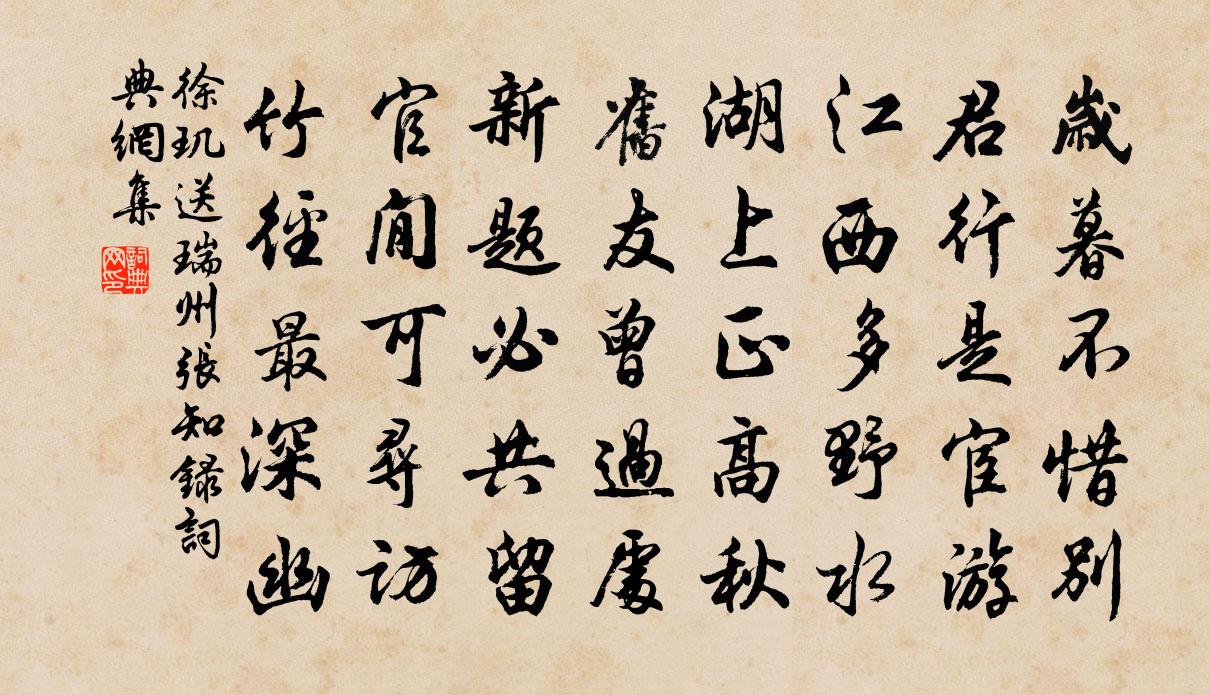 歲暮不惜別
君行是宦游
江西多野水
湖上正高秋
舊友曾過處
新題必共留
官閒可尋訪
竹徑最深幽
徐玑送瑞州張知録詞
典網集
詞典
网印